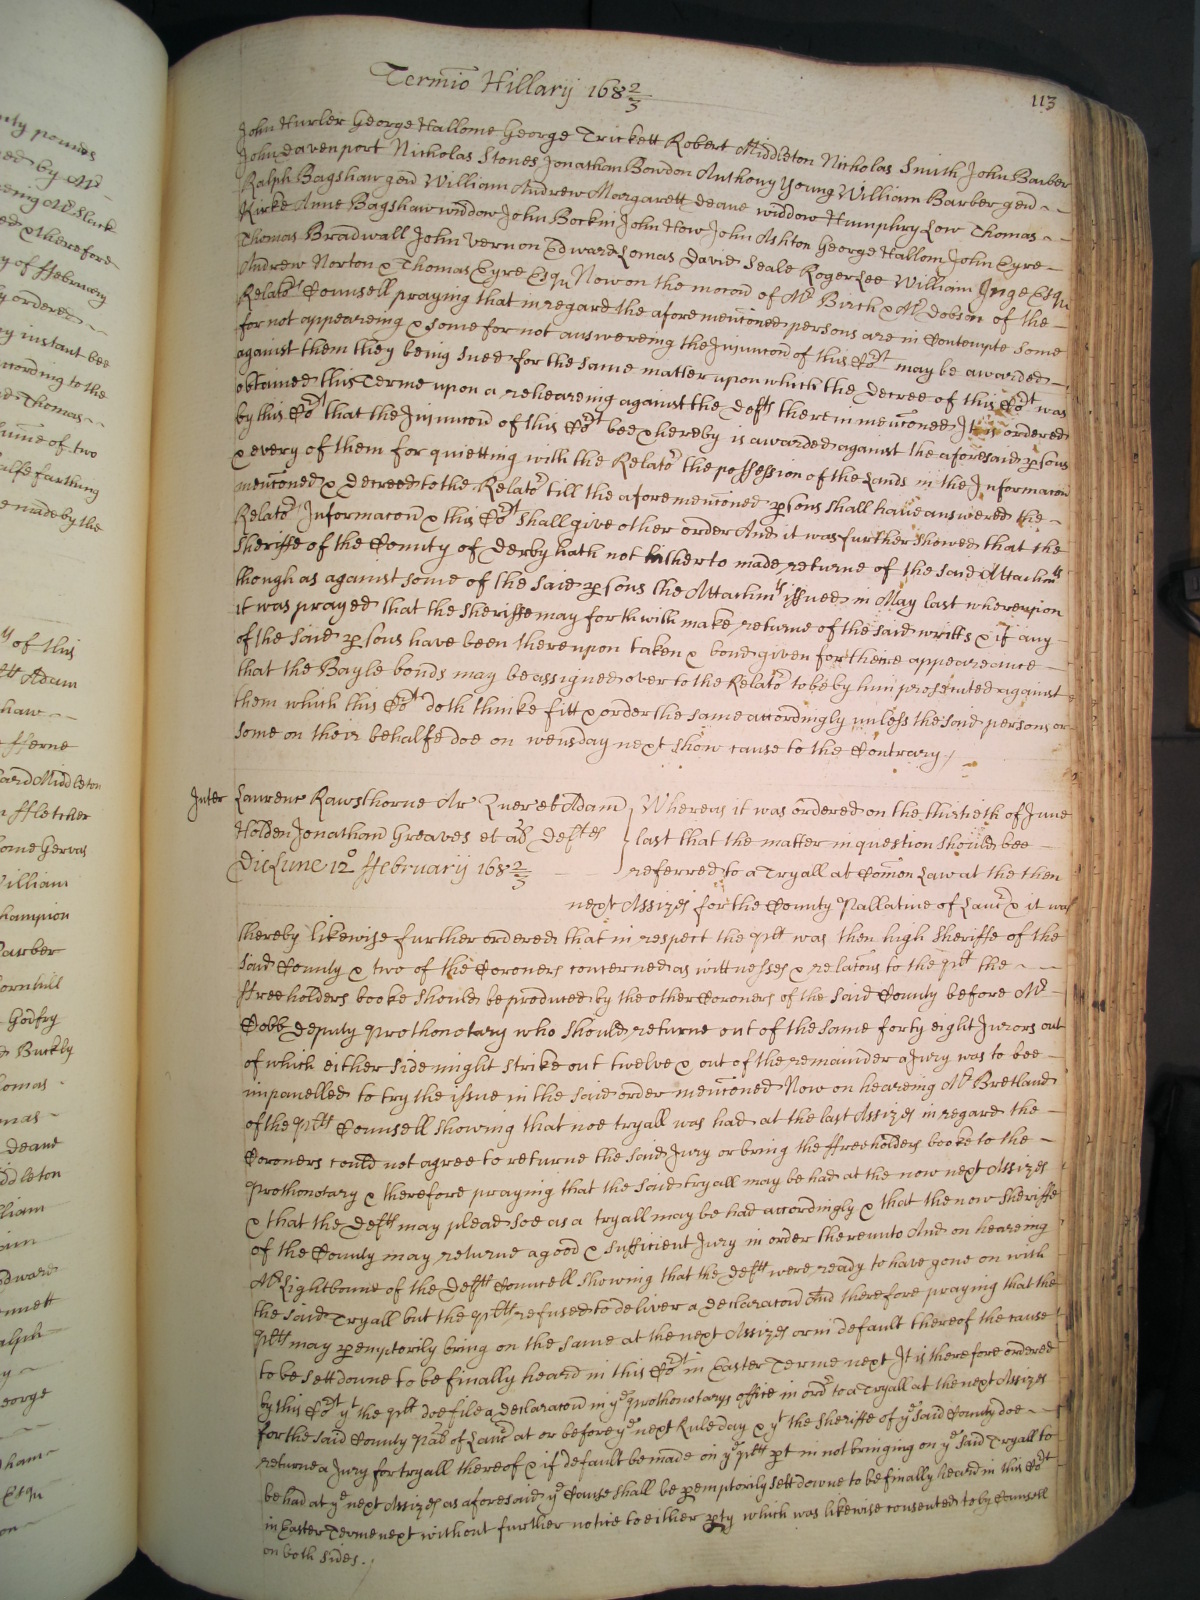 Termio Hillarij 168 2/3
113
John Hurler George Hallome George Trickett Robert Middleton Nicholas Smith John Barber
John Davenport Nicholas Stones Jonathan Bowdon Anthony Young William Barber gen
Ralph Bagshaw gen William Andrew Margarett Deane widdow Humphry Low Thomas
Kirke Anne Bagshaw widdow John Bockin John How John Ashton George Hallom John Eyre
Thomas Bradwall John Vernon Edward Lomas David Seale Roger Lee William Inge Esqr
Andrew Norton & Thomas Eyre Esqr Now on the mocon of Mr Birch & Mr Dobson of the
Relators Counsell praying that in regard the aforemenconed persons are in Contempte some
for not appeareing & some for not answereing the Injuncon of this Cort may be awarded
against them they being sued for the same matter upon which the Decree of this Cort was
obtained this Terme upon a reheareing against the Defts therein menconed It is ordered
by this Cort that the Injuncon of this Cort bee & hereby is awarded against the aforesaid psons
& every of them for quietting with the Relator the possession of the Lands in the Informacon
menconed & Decreed to the Relator till the aforemencioned psons shall have answered the
Relators Informacon & this Cort shall give other order And it was further shewed that the
Sheriffe of the County of Derby hath not hitherto made returne of the said Attachmts
though as against some of the said psons the Attachmts issued in May last whereupon
it was prayed that the Sheriffe may forthwith make returne of the said writts & if any
of the said psons have been thereupon taken & bond given for theire appeareance
that the Bayle bonds may be assigned over to the Relator to be by him prosecuted against
them which this Cort doth thinke fitt & order the same accordingly unless the said persons or
some on their behalfe doe on wensday next show cause to the Contrary /
Inter Laurence Rawsthorne Ar Quer et Adam
Holden Jonathan Greaves et al Deftes
Die Lune 12o February 168 2/3
Whereas it was ordered on the thirtieth of June
last that the matter in question should bee
referred to a Tryall at Comon Law at the then
next Assizes for the County Pallatine of Lanc & it was
thereby likewise further ordered that in respect the plt was then high Sheriffe of the
said County & two of the Coroners concerned as wittnesses & relacons to the plt the
ffreeholders booke should be produced by the other Coroners of the said County before Mr
Cobb deputy Prothonotary who should returne out of the same forty eight Jurors out
of which either side might strike out twelve & out of the remainder a Jury was to bee
impanelled to try the issue in the said order menconed Now on heareing Mr Bretland
of the plts Counsell showing that noe tryall was had at the last Assizes in regard the
Coroners could not agree to returne the said Jury or bring the ffreeholders booke to the
Prothonotary & therefore praying that the said tryall may be had at the now next Assizes
& that the Defts may plead soe as a tryall may be had accordingly & that the now Sheriffe
of the County may returne a good & sufficient Jury in order thereunto And on heareing
Mr Lightbowne of the Defts Councell showing that the Defts were ready to have gone on with
the said Tryall but the plts refused to deliver a Declaracon And therefore praying that the
plts may pemptorily bring on the same at the next Assizes or in default thereof the cause
to be sett downe to be finally heard in this Cort in Easter Terme next It is therefore ordered
by this Cort yt the plt doe file a Declaracon in ye Prothonotarys office in ordr to a Tryall at the next Assizes
for the said County Pal of Lanc at or before ye next Rule day & yt the Sheriffe of ye said County doe
returne a Jury for tryall thereof & if default be made on ye plts pt in not bringing on ye said Tryall to
be had at ye next Assizes as aforesaid ye Cause shall be pemptorily sett downe to be finally heard in this Cort
in Easter Terme next without further notice to either pty which was likewise consented to by Counsell
on both sides. /